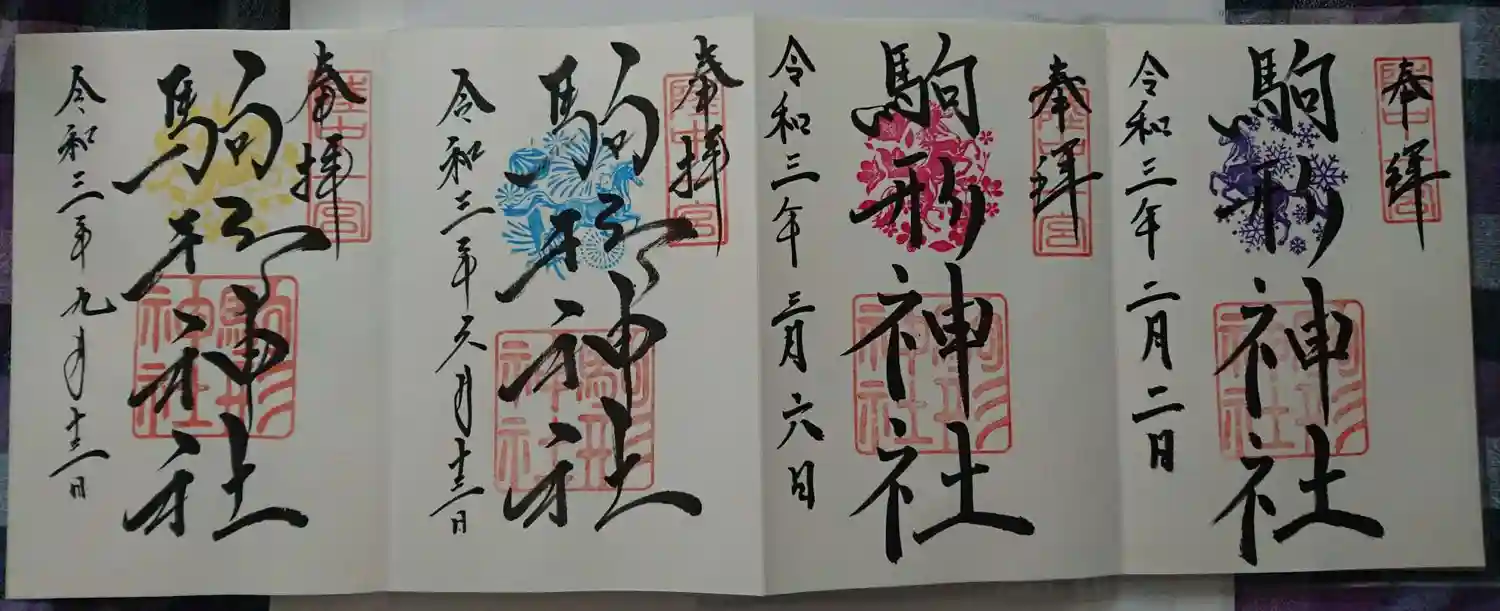 奉拝
陸中一宮
駒形神社
駒形神社
令和三年二月二日
奉拝
陸中一宮
駒形神社
駒形神社
令和三年三月六日
奉拝
陸中一宮
駒形神社
駒形神社
令和三年六月十三日
奉拝
陸中一宮
駒形神社
駒形神社
令和三年九月十二日